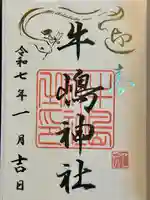 牛嶋神社
令和七年一月吉日